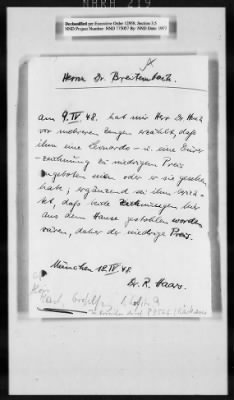 NARA 219
Declassified per Executive Order 12958, Section 3.5
NND Project Number: NND 775057 By: NND Date: 1977
Herrn Dr. Breitenbach
am 9. IV 48. hat mir Herr Dr.
vor mehreren Zeugen erzählt, daß
ihm eine Leonardo - u. eine Dürer
-zeichnung zu niedrigem Preis
angeboten seien oder er sie gesehen
habe; ergänzend sei ihm erzäh-
lt, daß beide Zeichnungen
aus dem Hause gestohlen worden
wären, daher der niedrige Preis.
München 12. IV 48.
Dr. R. Haars.